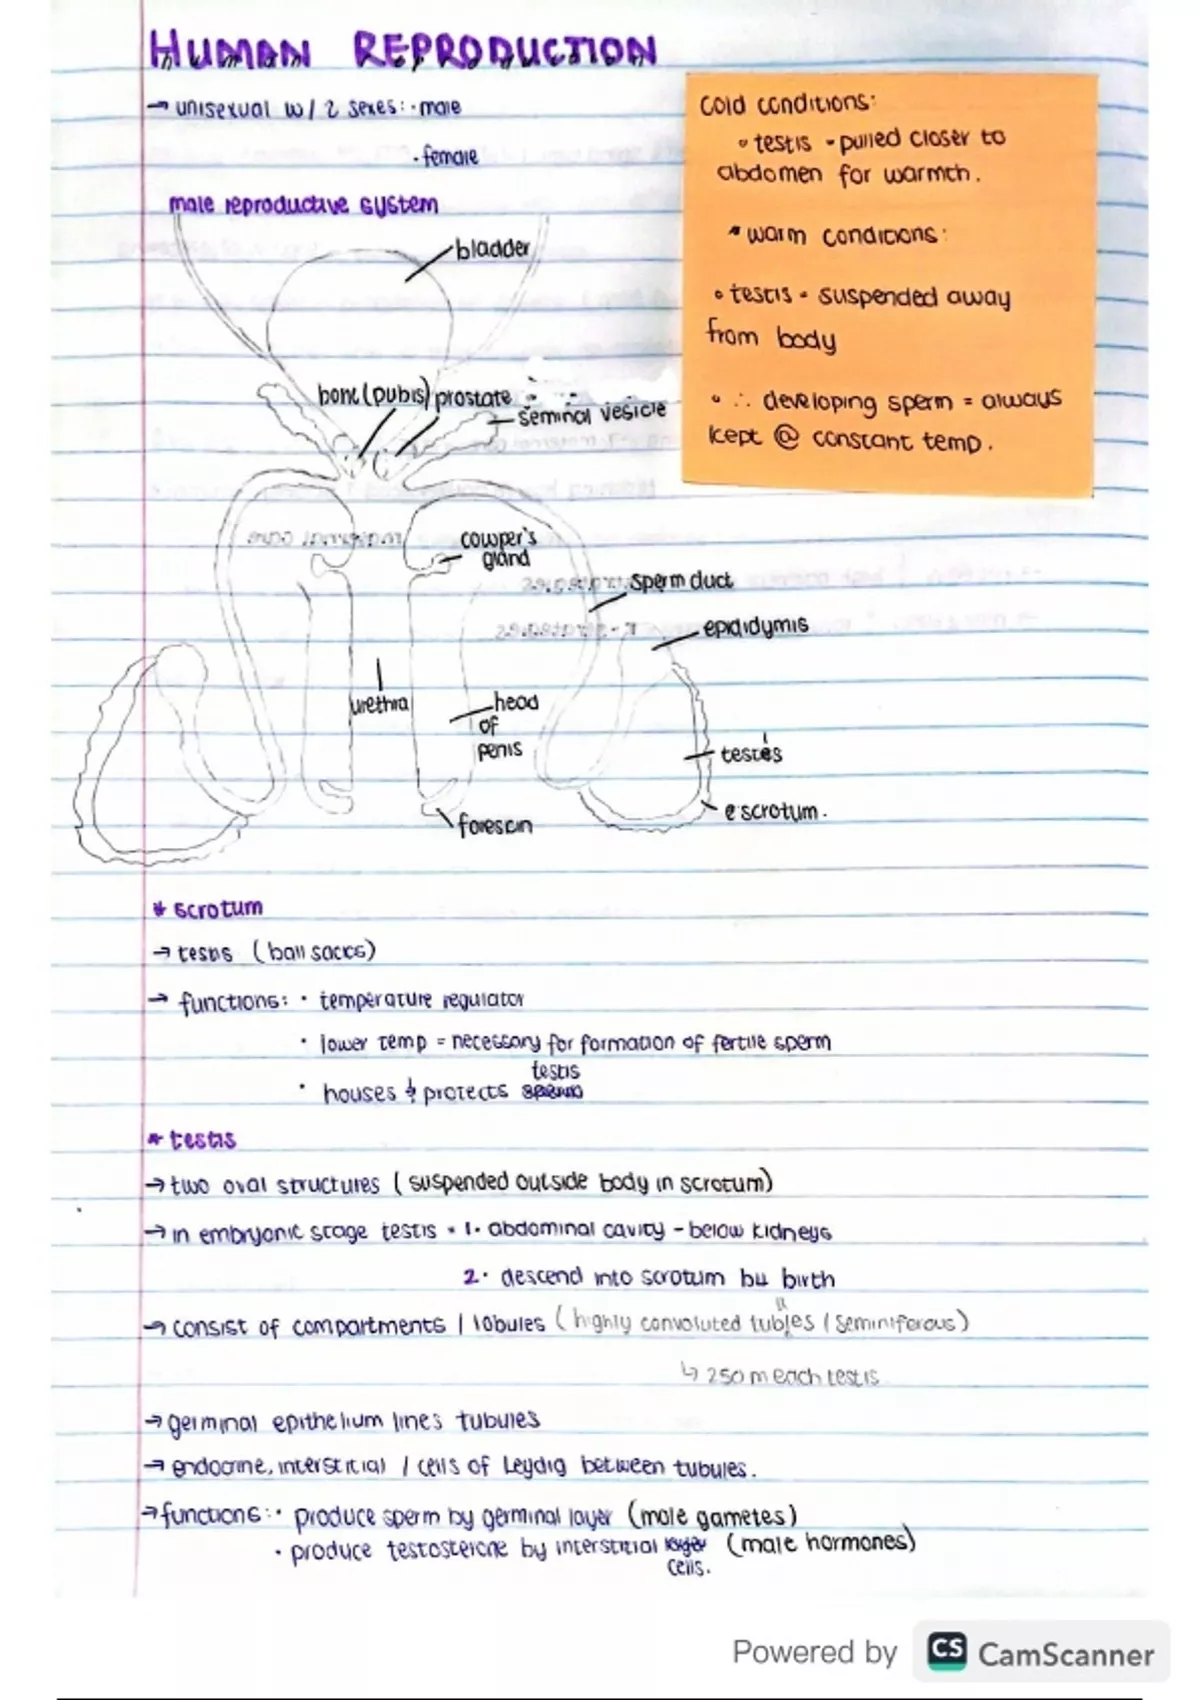 HUMAN REPRODUCTION
→ unisexual w/ 2 sexes: · male
· female
male reproductive system
bladder
bone (pubis) prostate
seminal vesicle
cowper's
gland
sperm duct
epididymis
urethra
head
of
penis
testes
scrotum.
foreskin
Cold conditions:
◦ testis - pulled closer to
abdomen for warmth.
* warm conditions:
◦ testis - suspended away
from body
• ∴ developing sperm = always
kept @ constant temp.
* scrotum
→ testis (ball sacks)
→ functions: · temperature regulator
· lower temp = necessary for formation of fertile sperm
testis
· houses & protects sperm
* testis
→ two oval structures (suspended outside body in scrotum)
→ in embryonic stage testis • 1. abdominal cavity - below kidneys
2. descend into scrotum by birth
→ consist of compartments / lobules (highly convoluted tubules (seminiferous)
↳ 250 m each testis
→ germinal epithelium lines tubules
→ endocrine, interstitial / cells of Leydig between tubules.
→ functions: · produce sperm by germinal layer (male gametes)
· produce testosterone by interstitial layer (male hormones)
cells.
Powered by CS CamScanner